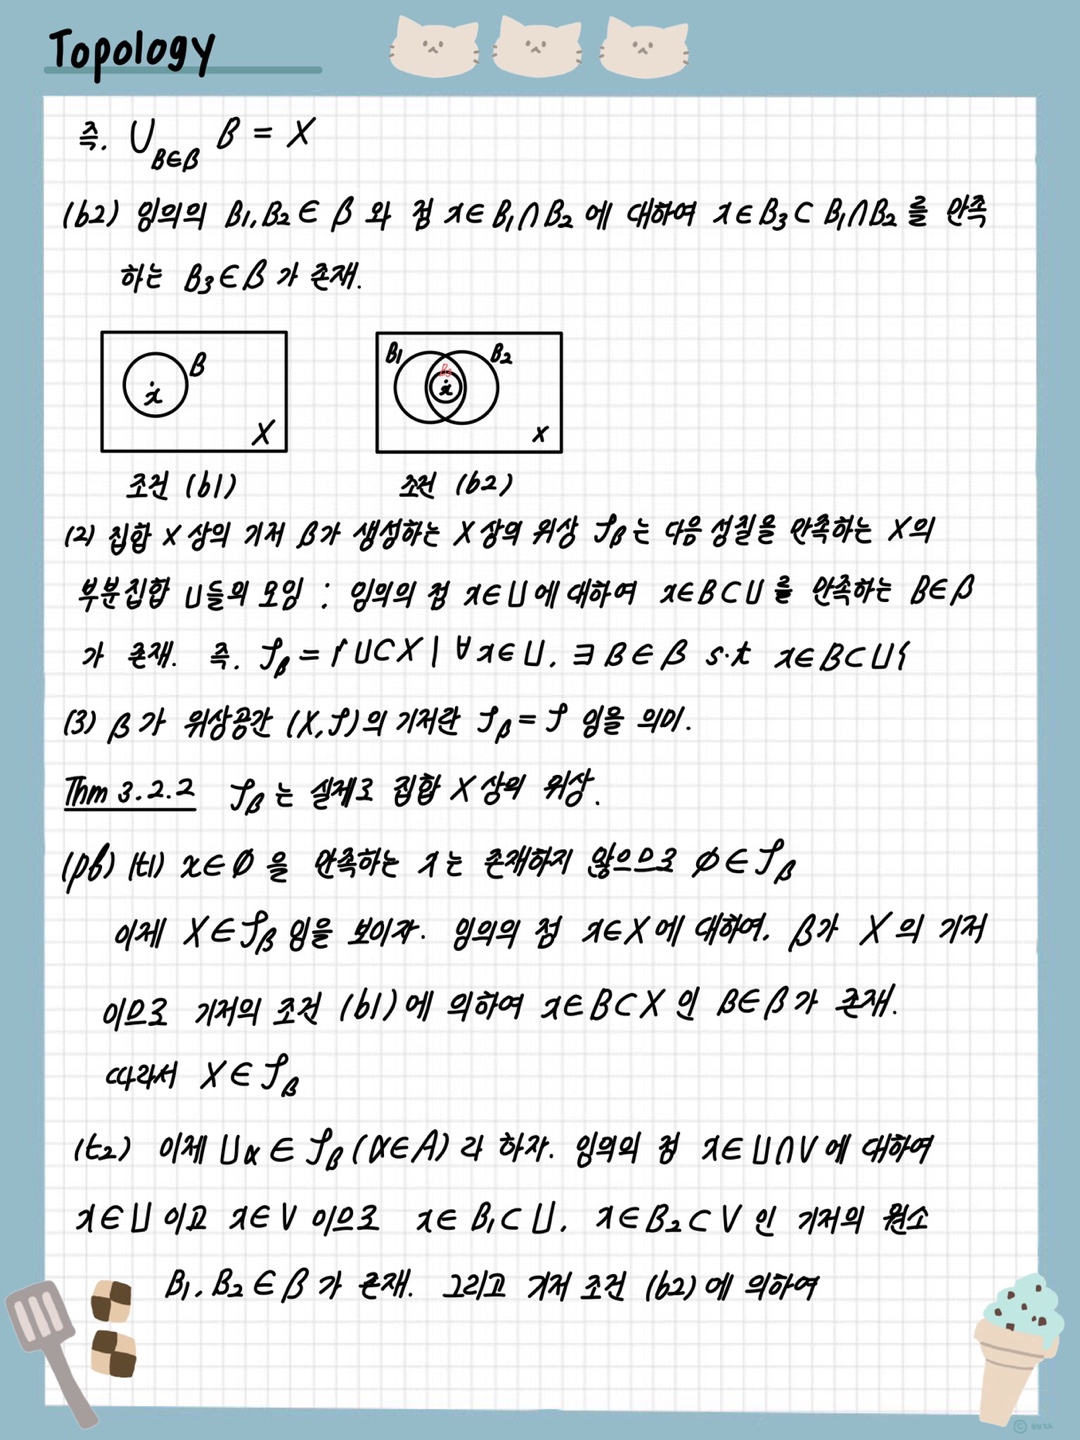 Topology
즉. ⋃_{B∈β} B = X
(b2) 임의의 B₁, B₂ ∈ β 와 점 x∈B₁∩B₂ 에 대하여 x∈B₃⊂B₁∩B₂ 를 만족
하는 B₃∈β 가 존재.
B
x
X
B₁ B₂
B₃
x
X
조건 (b1) 조건 (b2)
(2) 집합 X 상의 기저 β가 생성하는 X 상의 위상 𝒯_β 는 다음 성질을 만족하는 X의
부분집합 U들의 모임 : 임의의 점 x∈U에 대하여 x∈B⊂U를 만족하는 B∈β
가 존재. 즉. 𝒯_β = {U⊂X | ∀x∈U, ∃B∈β s.t x∈B⊂U}
(3) β가 위상공간 (X, 𝒯)의 기저란 𝒯_β = 𝒯 임을 의미.
Thm 3.2.2 𝒯_β 는 실제로 집합 X 상의 위상.
(pf) (t1) x∈∅ 을 만족하는 x는 존재하지 않으므로 ∅∈𝒯_β
이제 X∈𝒯_β 임을 보이자. 임의의 점 x∈X에 대하여, β가 X의 기저
이므로 기저의 조건 (b1)에 의하여 x∈B⊂X 인 B∈β가 존재.
따라서 X∈𝒯_β
(t2) 이제 Uα ∈ 𝒯_β (α∈A) 라 하자. 임의의 점 x∈U∩V에 대하여
x∈U 이고 x∈V 이므로 x∈B₁⊂U, x∈B₂⊂V 인 기저의 원소
B₁, B₂ ∈ β 가 존재. 그리고 기저 조건 (b2)에 의하여